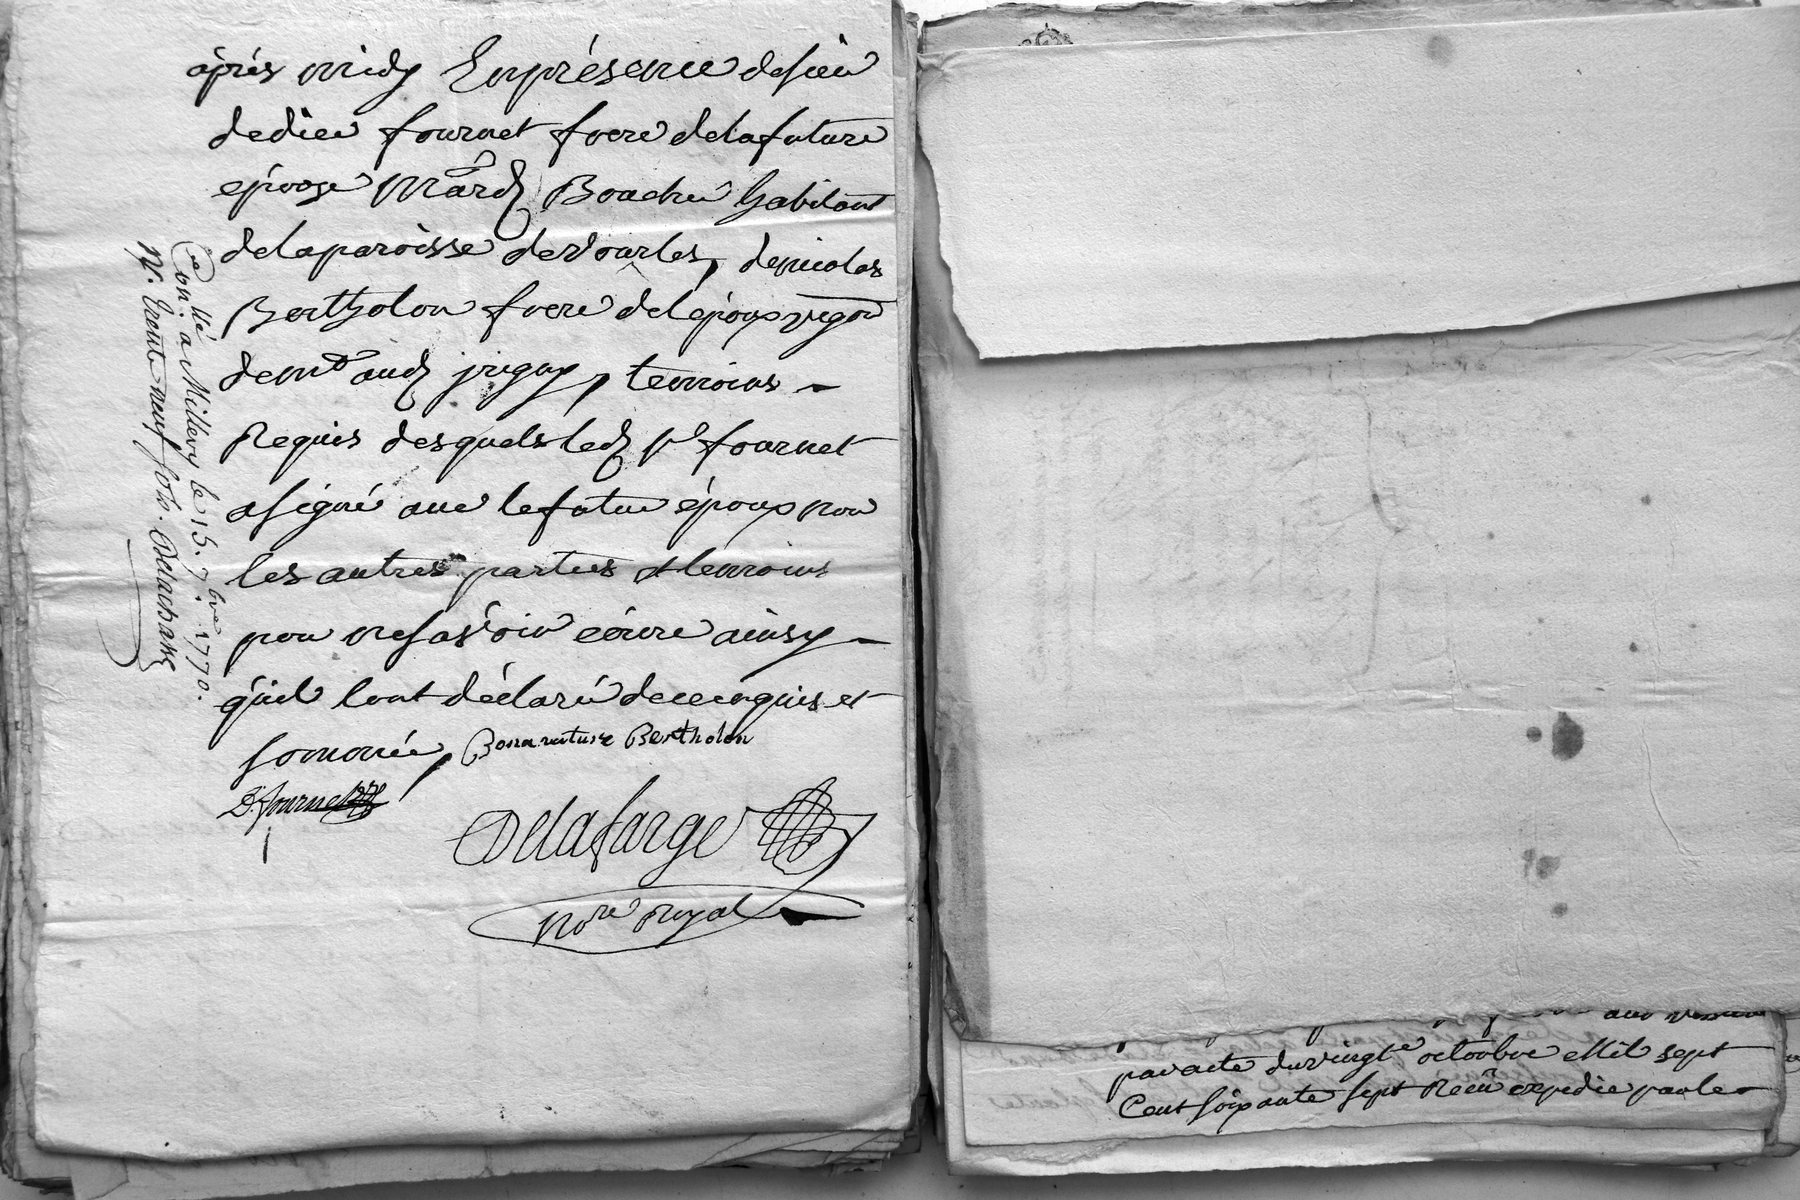 après midy En présence de sieur
dedier fournet frere de la future
épouse Mard Boucher habitant
de la paroisse de vourles, de nicolas
Bertholon frere de l'époux vigon
de md aud jrigny, temoins -
Requis desquels led sr fournet
a signé avec le futur époux non
les autres parties et temoins
pour ne savoir écrire ainsy -
quil lont déclaré de ce enquis et
sommée, Bonavature Bertholon
D. fournet
Delafarge
Nore Royal
Conllé a Millery le 15. 7.bre 1770.
N. trente neuf sols. Delachans
par acte du vingte octoubre Mil sept
Cent soixante sept Recu expedie par le